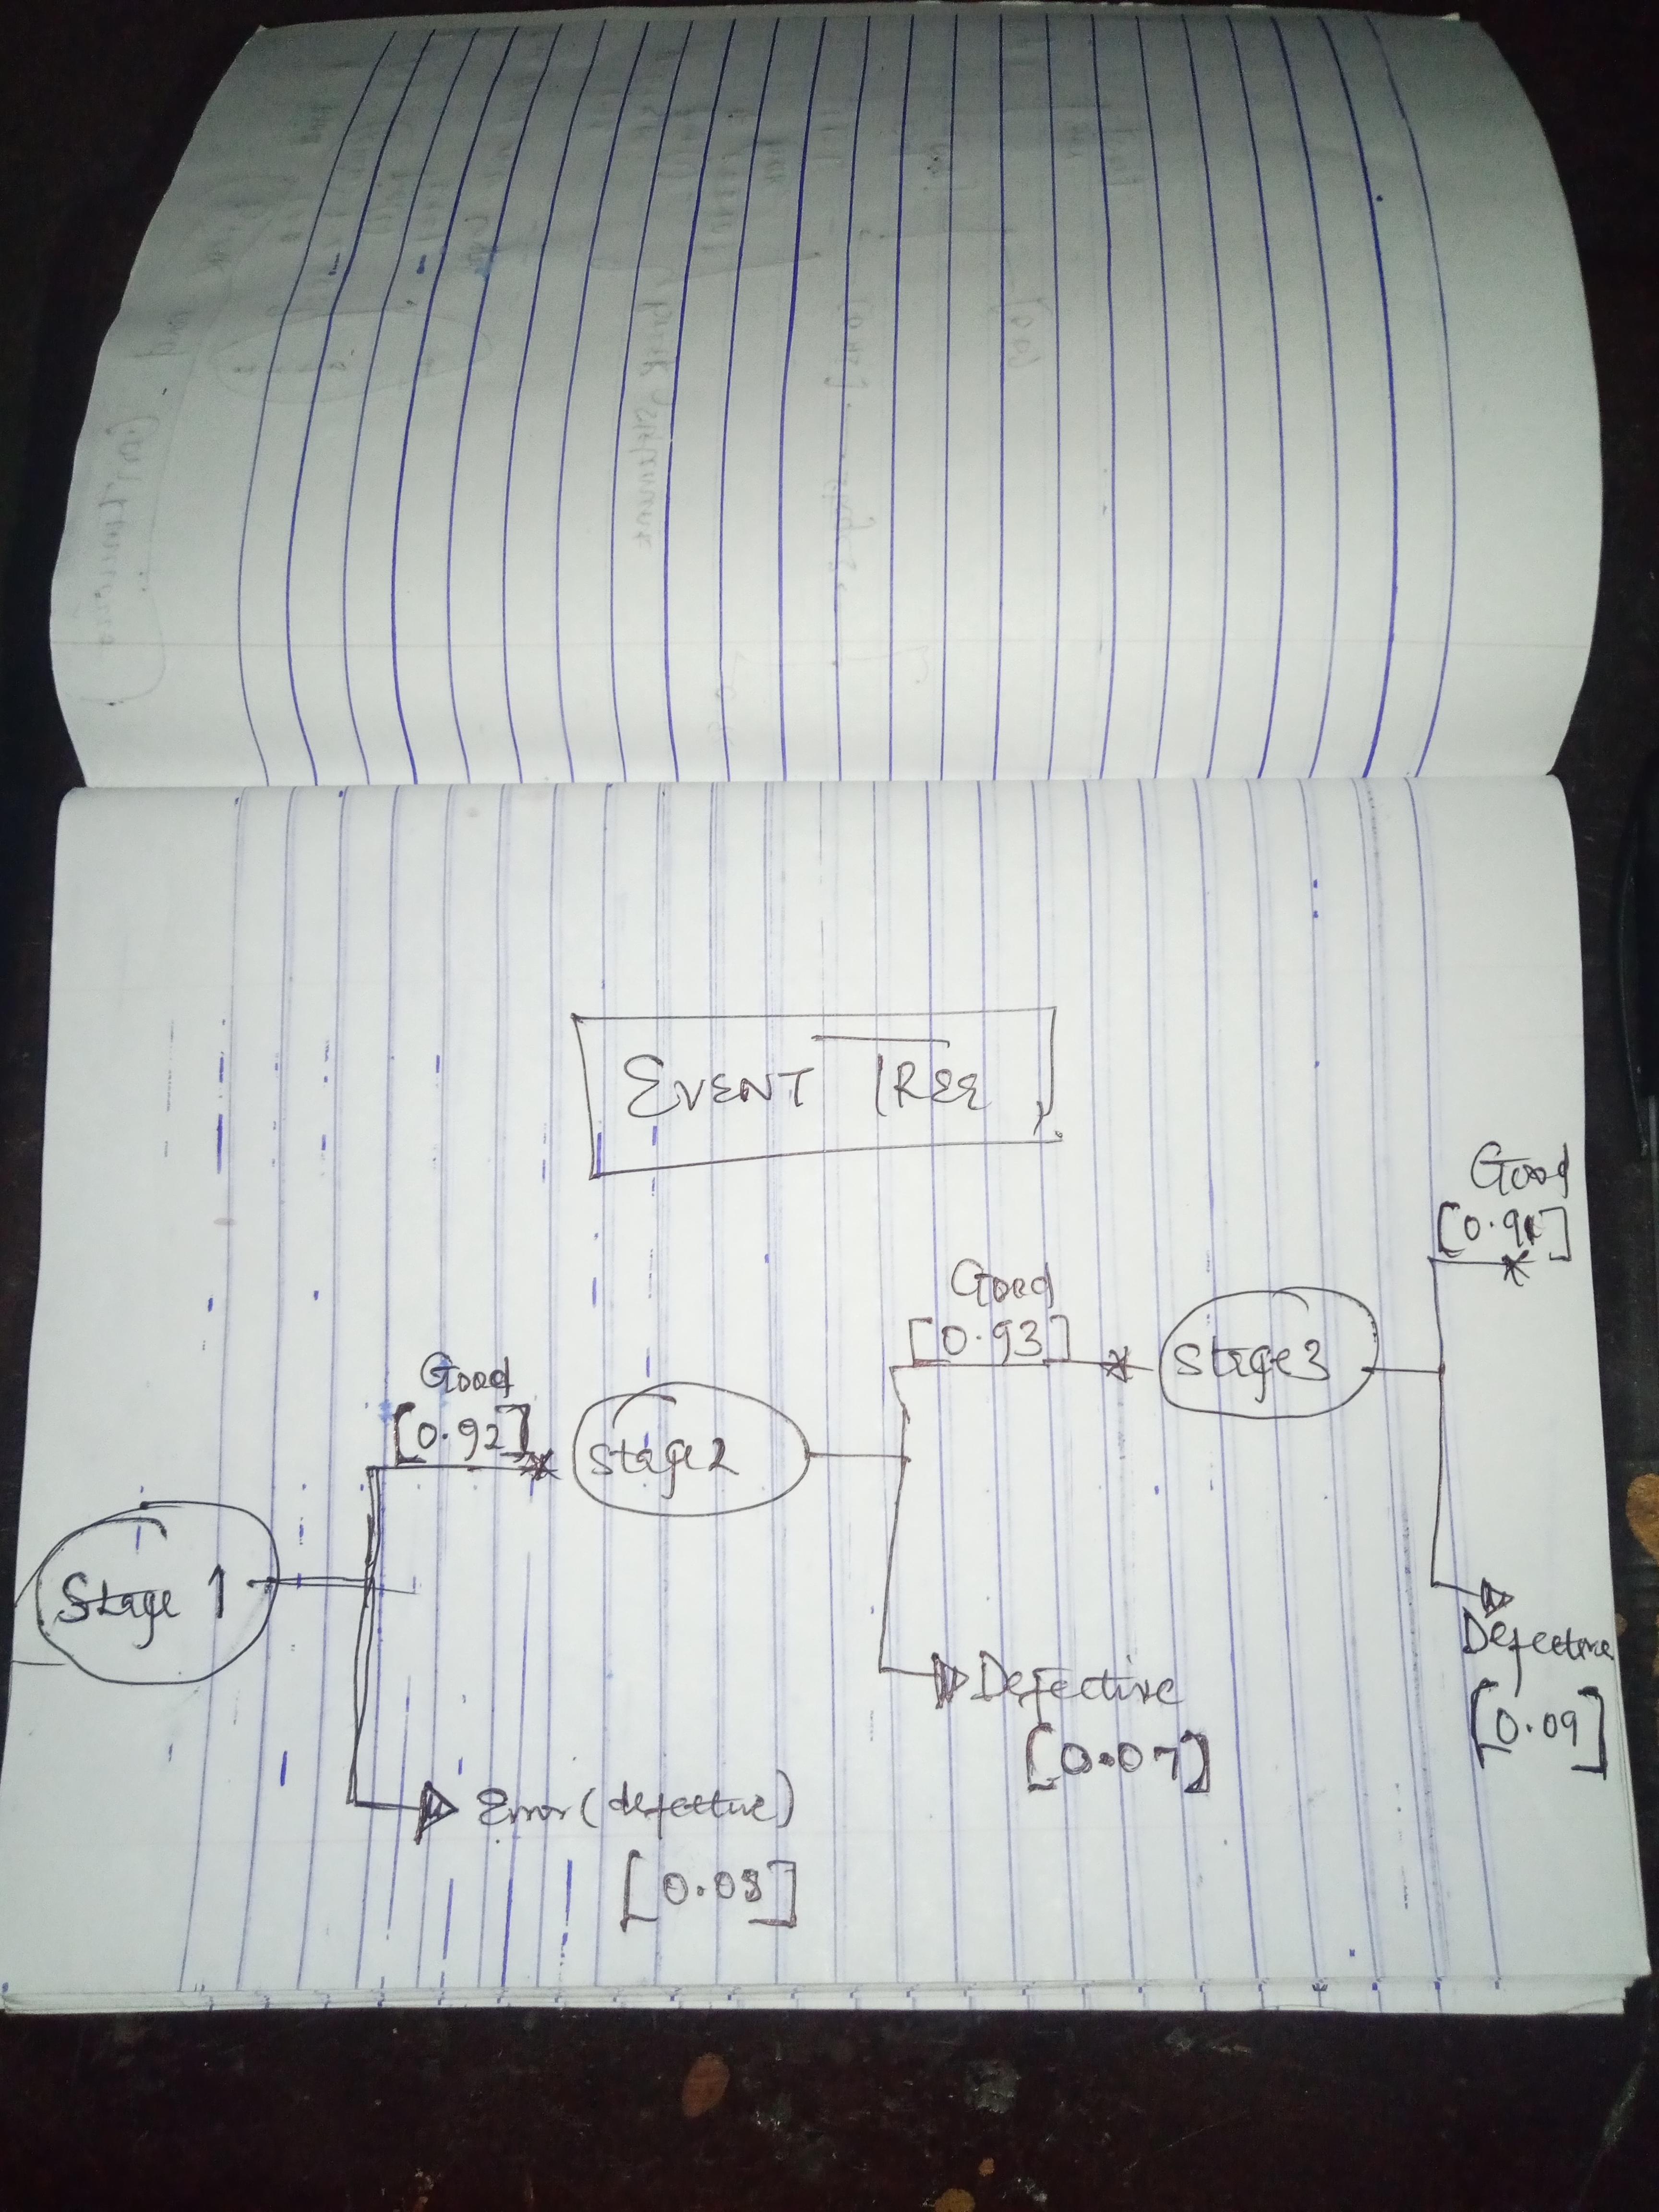 EVENT TREE
Good
[0.91]
Good
[0.93]
Stage3
Good
[0.92]
Stage2
Stage 1
Defective
[0.09]
Defective
[0.07]
Error (defective)
[0.08]